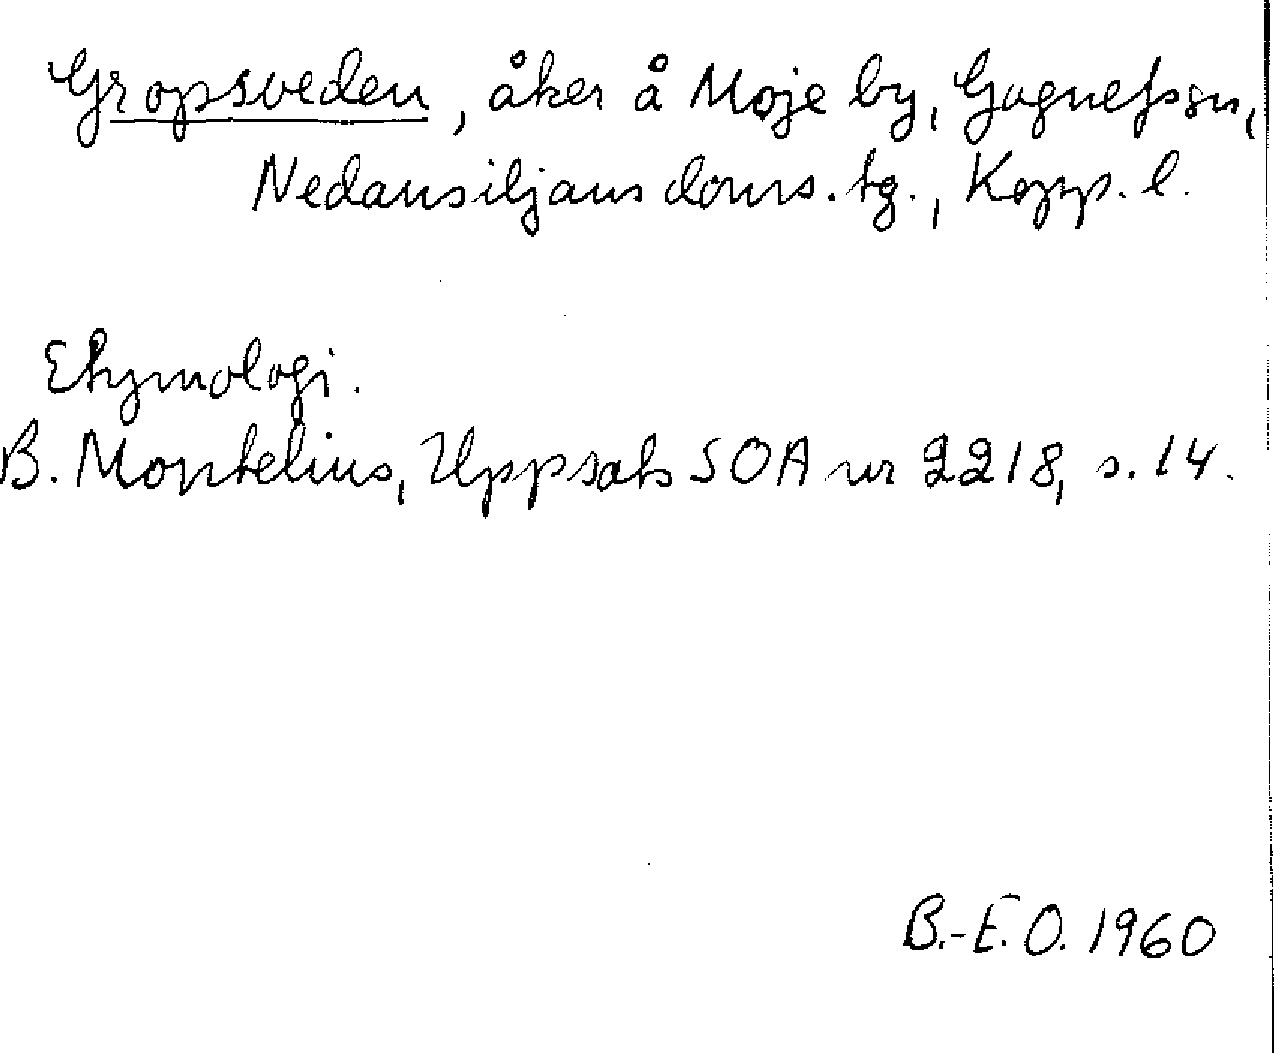 Gropsveden, åker å Moje by, Gagnefs sn,
Nedansiljans doms. tg., Kopp. l.
Etymologi.
B. Montelius, Uppsats SOA nr 2218, s. 14.
B.-E. O. 1960